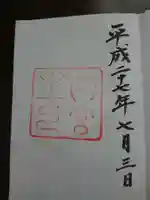 平成二十七年七月三日